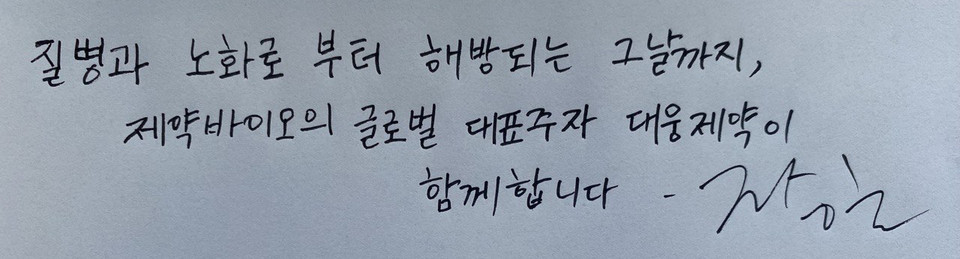 질병과 노화로 부터 해방되는 그날까지,
제약바이오의 글로벌 대표주자 대웅제약이
함께합니다 -